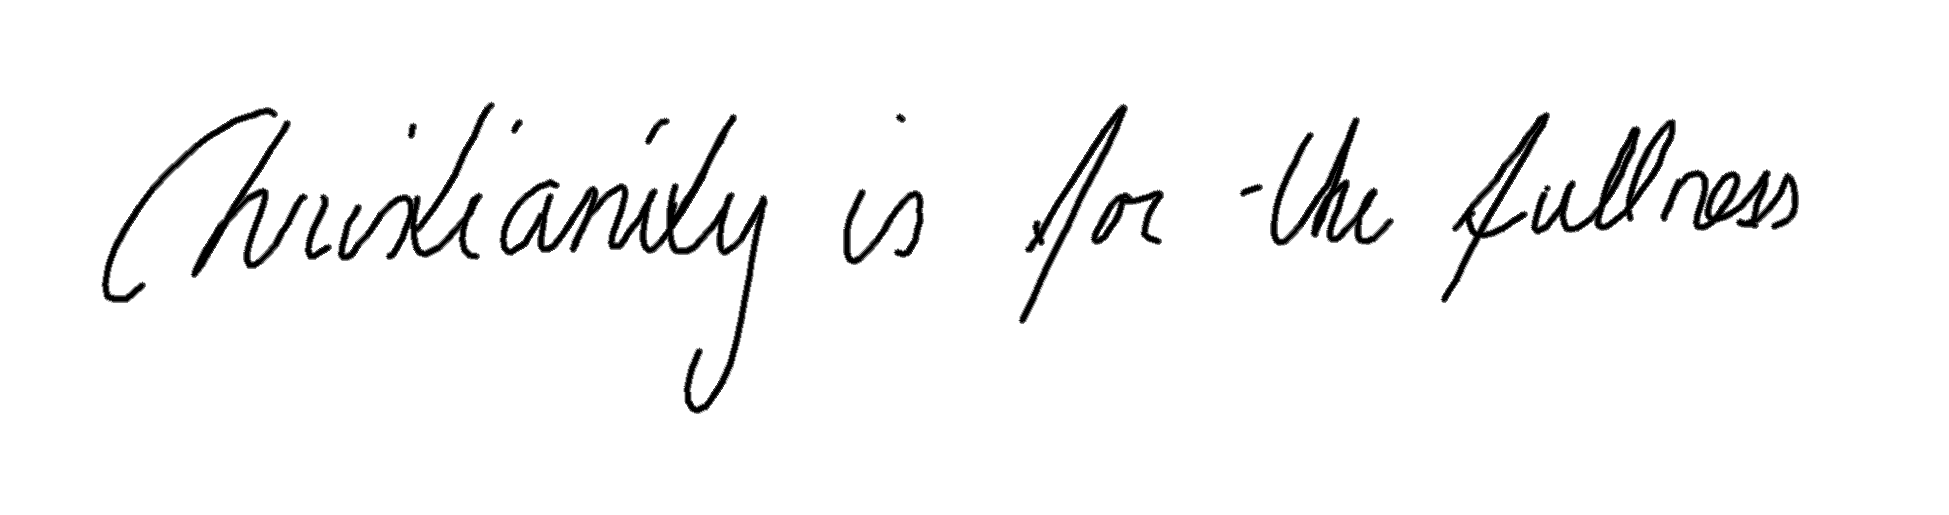 Christianity is for the fullness